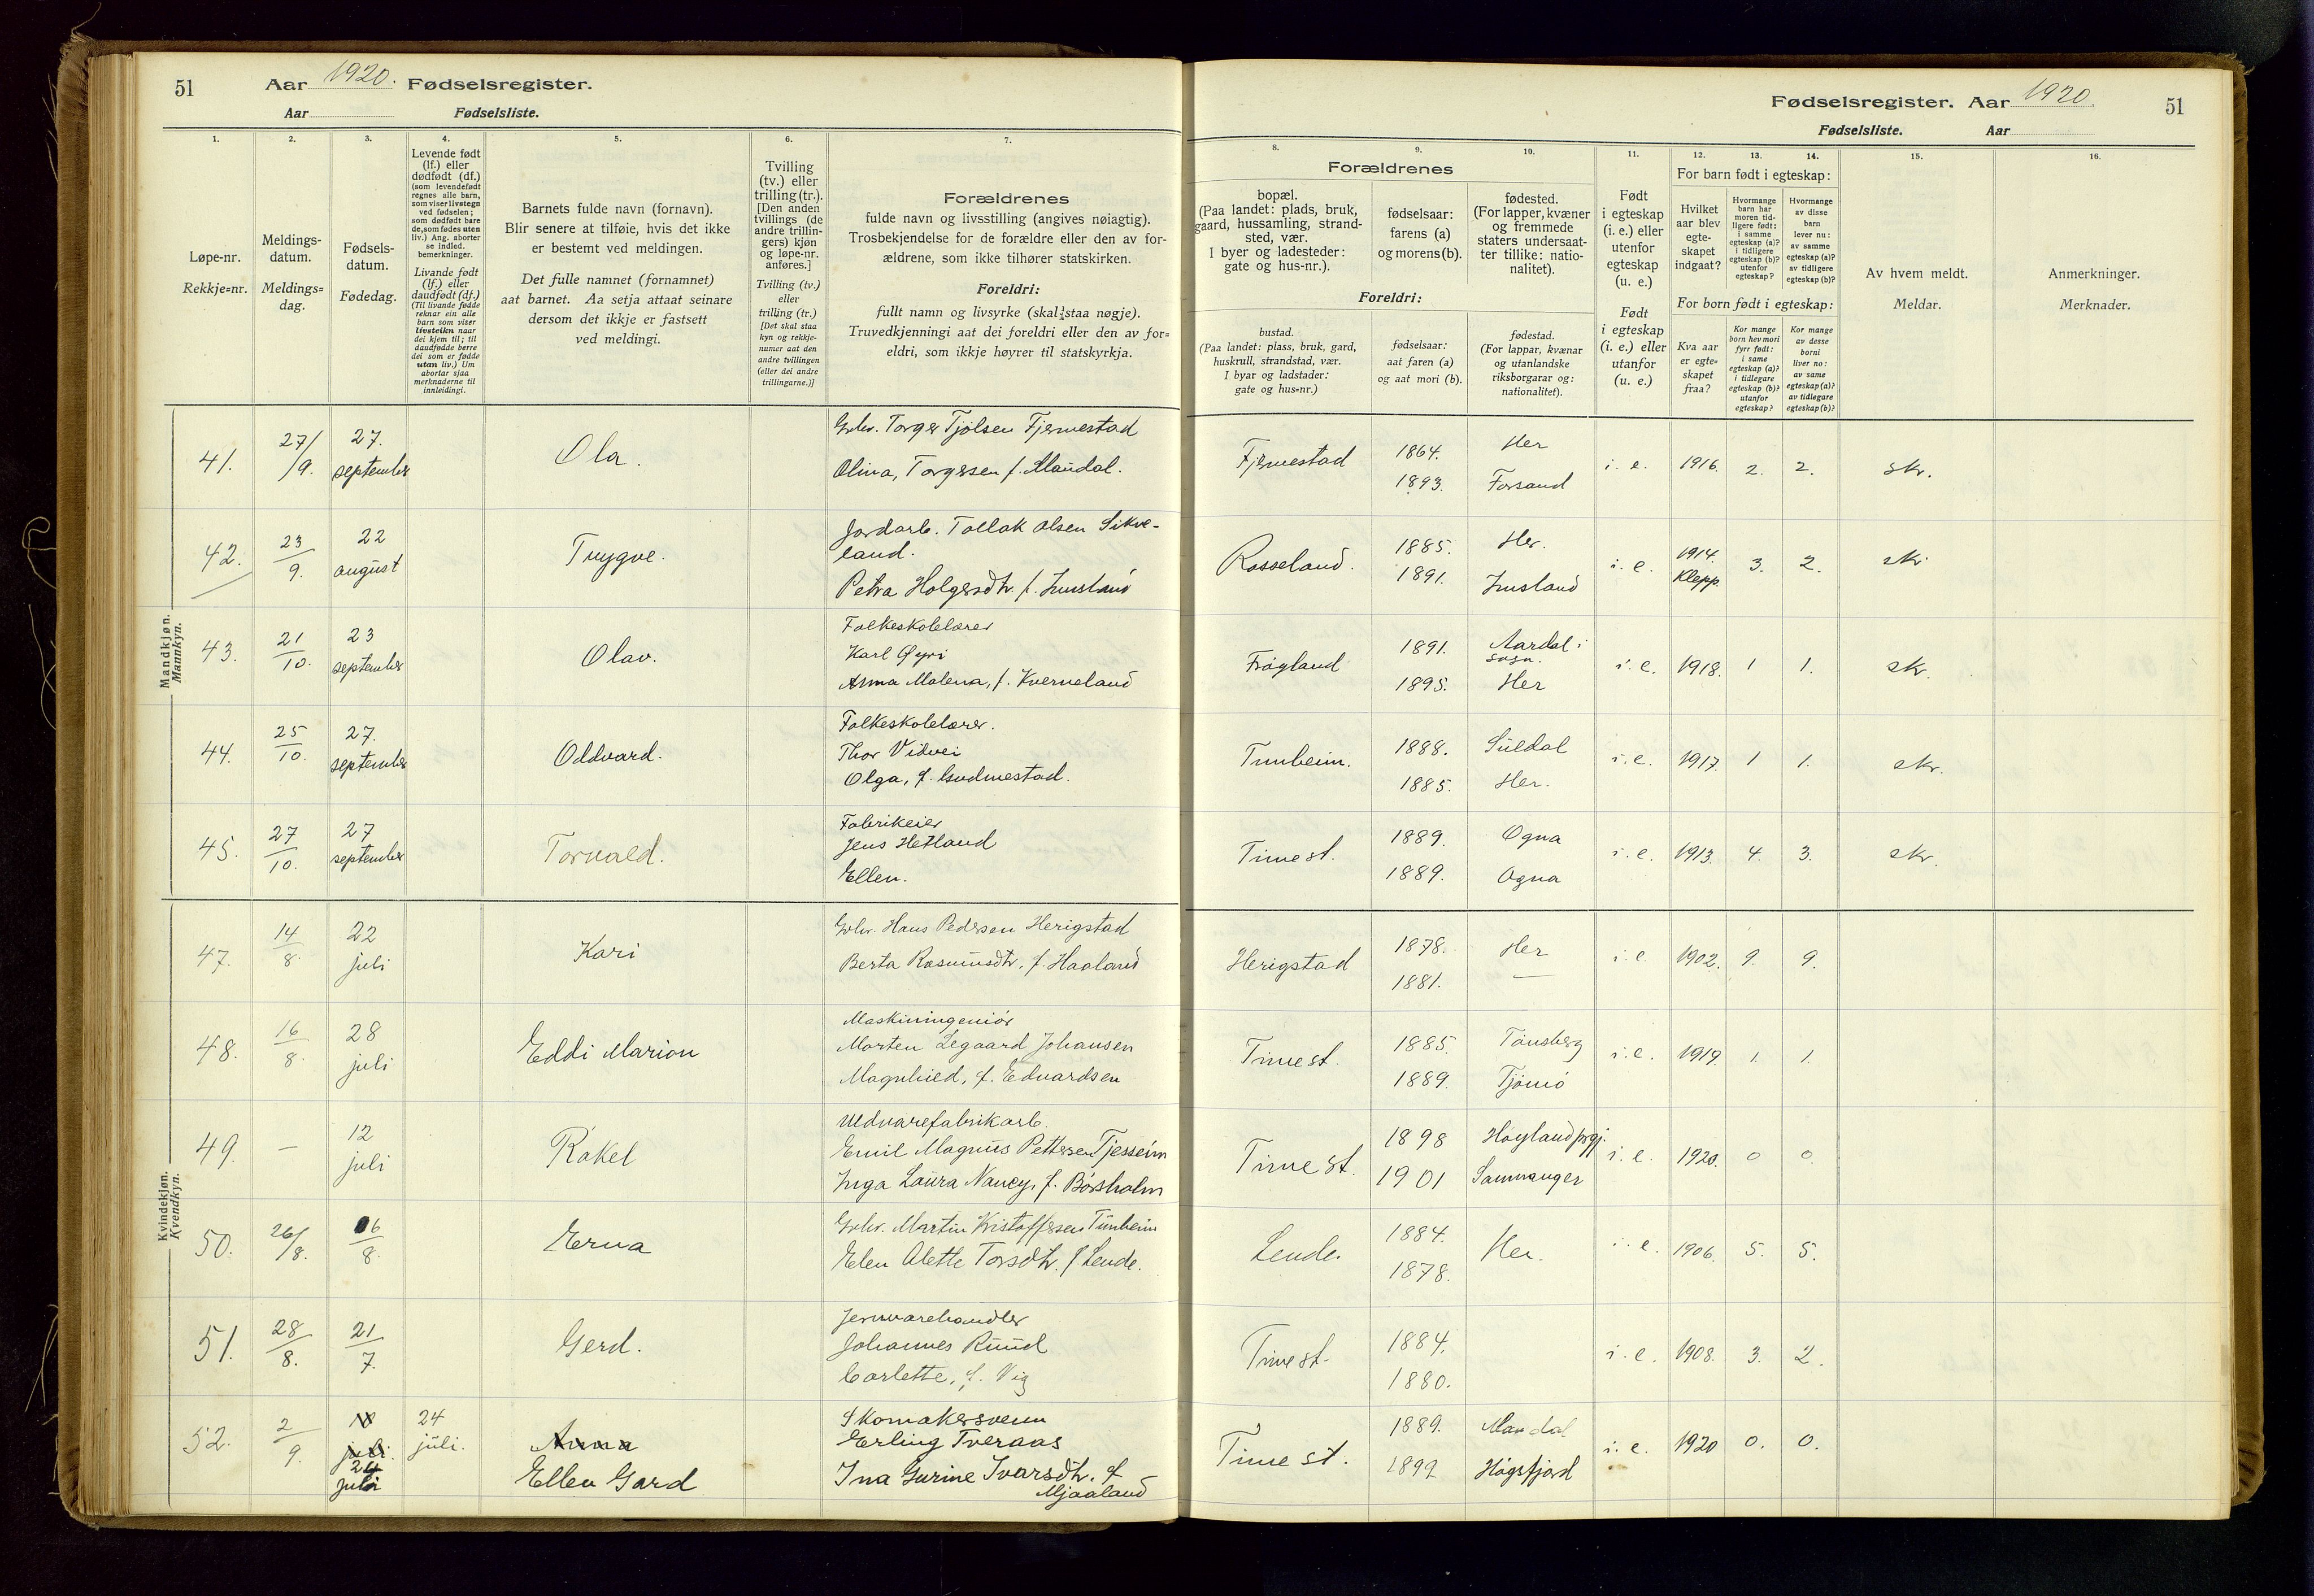 51 Aar 1920. Fødselsregister.
Aar Fødselsliste.
Fødselsregister. Aar 1920. 51
Fødselsliste. Aar
1. 2. 3. 4. 5. 6. 7.
8. 9. 10. 11. 12. 13. 14. 15. 16.
Løpe-nr.
Rekkje=nr.
Meldings-
datum.
Meldings=
dag.
Fødsels-
datum.
Fødedag.
Levende født
(lf.) eller
dødfødt (df.)
(som levendefødt
regnes alle barn,
som viser livstegn
ved fødselen;
som dødfødt bare
de, som fødes uten
liv.) Ang. aborter
se indled.
bemerkninger.
Livande født
(lf.) eller
daudfødt (df.)
(Til livande fødde
reknar ein alle
barn som viser
livsteikn naar
dei kjem til; til
daudfødde berre
dei som er fødde
utan liv.) Um
abortar sjaa
merknaderne til
innleidingi.
Barnets fulde navn (fornavn).
Blir senere at tilføie, hvis det ikke
er bestemt ved meldingen.
Det fulle namnet (fornamnet)
aat barnet. Aa setja attaat seinare
dersom det ikkje er fastsett
ved meldingi.
Tvilling
(tv.) eller
trilling (tr.).
[Den anden
tvillings (de
andre trillin-
gers) kjøn
og løpe-nr.
anføres.]
Tvilling (tv.)
eller
trilling (tr.)
[Det skal staa
kyn og rekkje-
numer aat den
andre tvillingen
(eller dei andre
trillingarne.)]
Forældrenes
fulde navn og livsstilling (angives nøiagtig).
Trosbekjendelse for de forældre eller den av for-
ældrene, som ikke tilhører statskirken.
Foreldri:
fullt namn og livsyrke (skal staa nøgje).
Truvedkjenningi aat dei foreldri eller den av for=
eldri, som ikkje høyrer til statskyrkja.
Forældrenes
bopæl.
(Paa landet: plads, bruk,
gaard, hussamling, strand-
sted, vær.
I byer og ladesteder:
gate og hus-nr.).
fødselsaar:
farens (a)
og morens (b).
fødested.
(For lapper, kvæner
og fremmede
staters undersaat-
ter tillike: natio-
nalitet).
Foreldri:
bustad.
(Paa landet: plass, bruk, gard,
huskrull, strandstad, vær.
I byar og ladstader:
gate og hus=nr.)
fødselsaar:
aat faren (a)
og aat mori (b).
fødestad.
(For lappar, kvænar
og utanlandske
riksborgarar og:
nationalitet).
Født
i egteskap
(i. e.) eller
utenfor
egteskap
(u. e.)
Født
i egteskap
(i. e.) eller
utanfor
(u. e.)
For barn født i egteskap:
Hvilket
aar blev
egte-
skapet
indgaat?
Hvormange
barn har
moren tid-
ligere født:
i samme
egteskap (a)?
i tidligere
egteskap (b)?
utenfor
egteskap?
Hvormange
av disse
barn
lever nu:
av samme
egteskap (a)?
av tidligere
egteskap (b)?
For born født i egteskap:
Kva aar
er egte=
skapet
fraa?
Kor mange
born hev mori
fyrr født:
i same
egteskap (a)?
i tidlegare
egteskap (b)?
utanfor
egteskap?
Kor mange
av desse
borni
liver no:
av same
egteskap (a)?
av tidlegare
egteskap (b)?
Av hvem meldt.
Meldar.
Anmerkninger.
Merknader.
Mandkjøn.
Mannkyn.
41. 27/9. 27. september Ola.
Gbr. Torger Tjølsen Fjermestad
Olina, Torgersen f. Mandal.
Fjermestad 1864. 1893. Her Forsand i. e. 1916. 2. 2. skr.
42. 23/9. 22 august Trygve.
Jordarb. Tollak Olsen Sikve-
land.
Petra Holgersdtr. f. Imsland
Rosseland. 1885. 1891. Her. Imsland i. e. 1914. Klepp. 3. 2. skr
43. 21/10. 23 september Olav.
Folkeskolelærer
Karl Øyri
Anna Malena, f. Kverneland
Frøgland 1891. 1895. Aardal i sogn. Her i. e. 1918. 1 1. skr.
44. 25/10. 27. september Oddvard.
Folkeskolelærer.
Thor Vidvei
Olga, f. Gudmestad.
Tunheim. 1888. 1885. Suldal Her. i. e. 1917. 1 1. skr.
45. 27/10. 27 september Torvald.
Fabrikeier
Jens Hetland
Ellen.
Time st. 1889. 1889. Ogna Ogna i. e. 1913. 4. 3. skr.
Kvindekjøn.
Kvendkyn.
47. 14/8. 22 juli Kari
Gbr. Hans Pedersen Herigstad
Berta Rasmusdtr, f. Haaland
Herigstad 1878. 1881. Her — i. e. 1902. 9. 9.
48. 16/8. 28 juli Eddi Marion
Maskiningeniør
Morten Legaard Johansen
Magnhild, f. Edvardsen
Time st. 1885. 1889. Tønsberg Tjømø i. e. 1919. 1. 1.
49. — 12 juli Rakel
Uldvarefabrikarb.
Emil Magnus Pettersen Tjesseim
Inga Laura Nancy, f. Børsholm
Time st. 1898 1901 Høyland prgj. Samnanger i. e. 1920. 0 0.
50. 26/8. 6/8. Erna
Gbr. Martin Kristoffersen Tunheim
Elen Alette Torsdtr. f Lende.
Lende. 1884. 1878. Her. i. e. 1906. 5. 5.
51. 28/8. 21/7. Gerd.
Jernvarehandler
Johannes Ruud
Carlette, f. Vig
Time st. 1884. 1880. i. e. 1908. 3. 2.
52. 2/9. 10 juli. 24 juli 24 juli. Anna
Ellen Gard
Skomakersvenn
Erling Tveraas
Ina Gurine Ivarsdtr. f
Mjaaland
Time st. 1889. 1892 Mandal Høgsfjord i. e. 1920 0. 0.